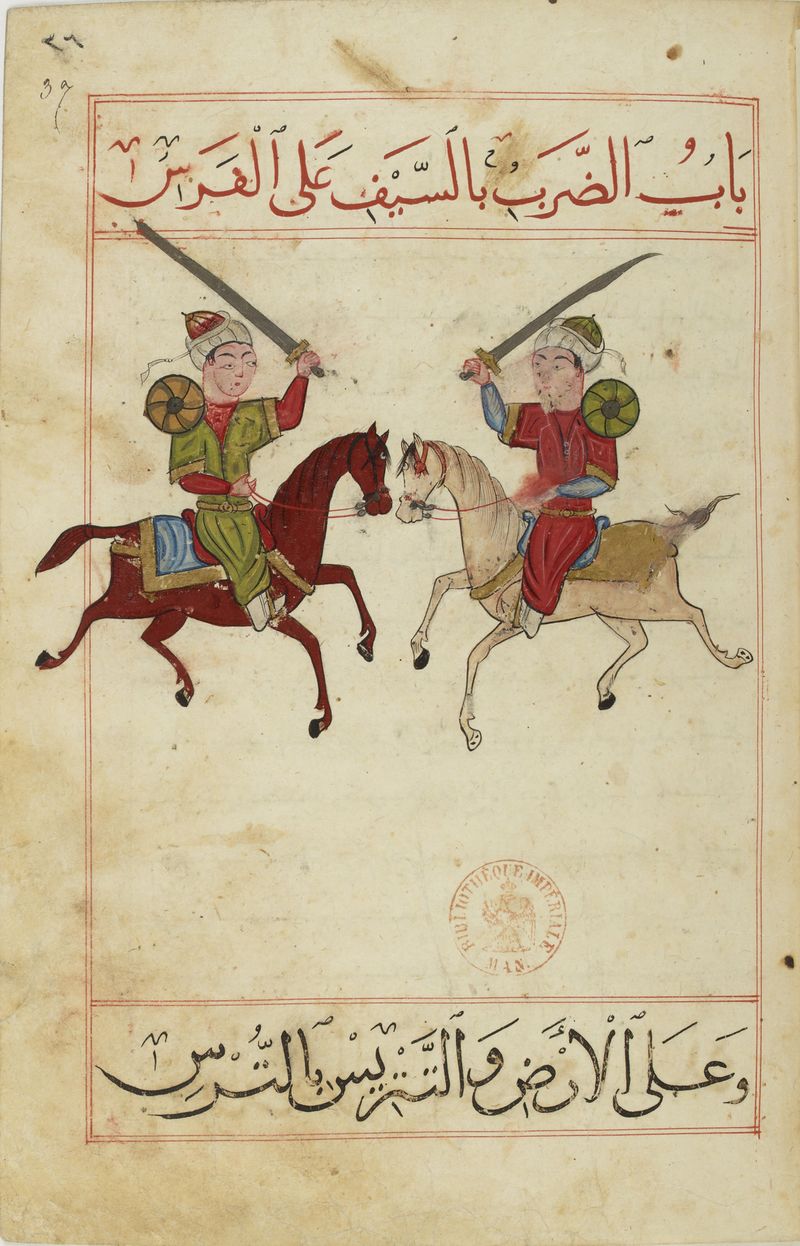 ٣٦
39
بَابُ الضَّرَبُ بِالسَّيَفِ عَلَى الْفَرَسِ
BIBLIOTHÈQUE IMPÉRIALE
MAN.
وَعَلَى الْأَرْضِ وَالتَّتْرِيْسِ بِالتُّرْسِ